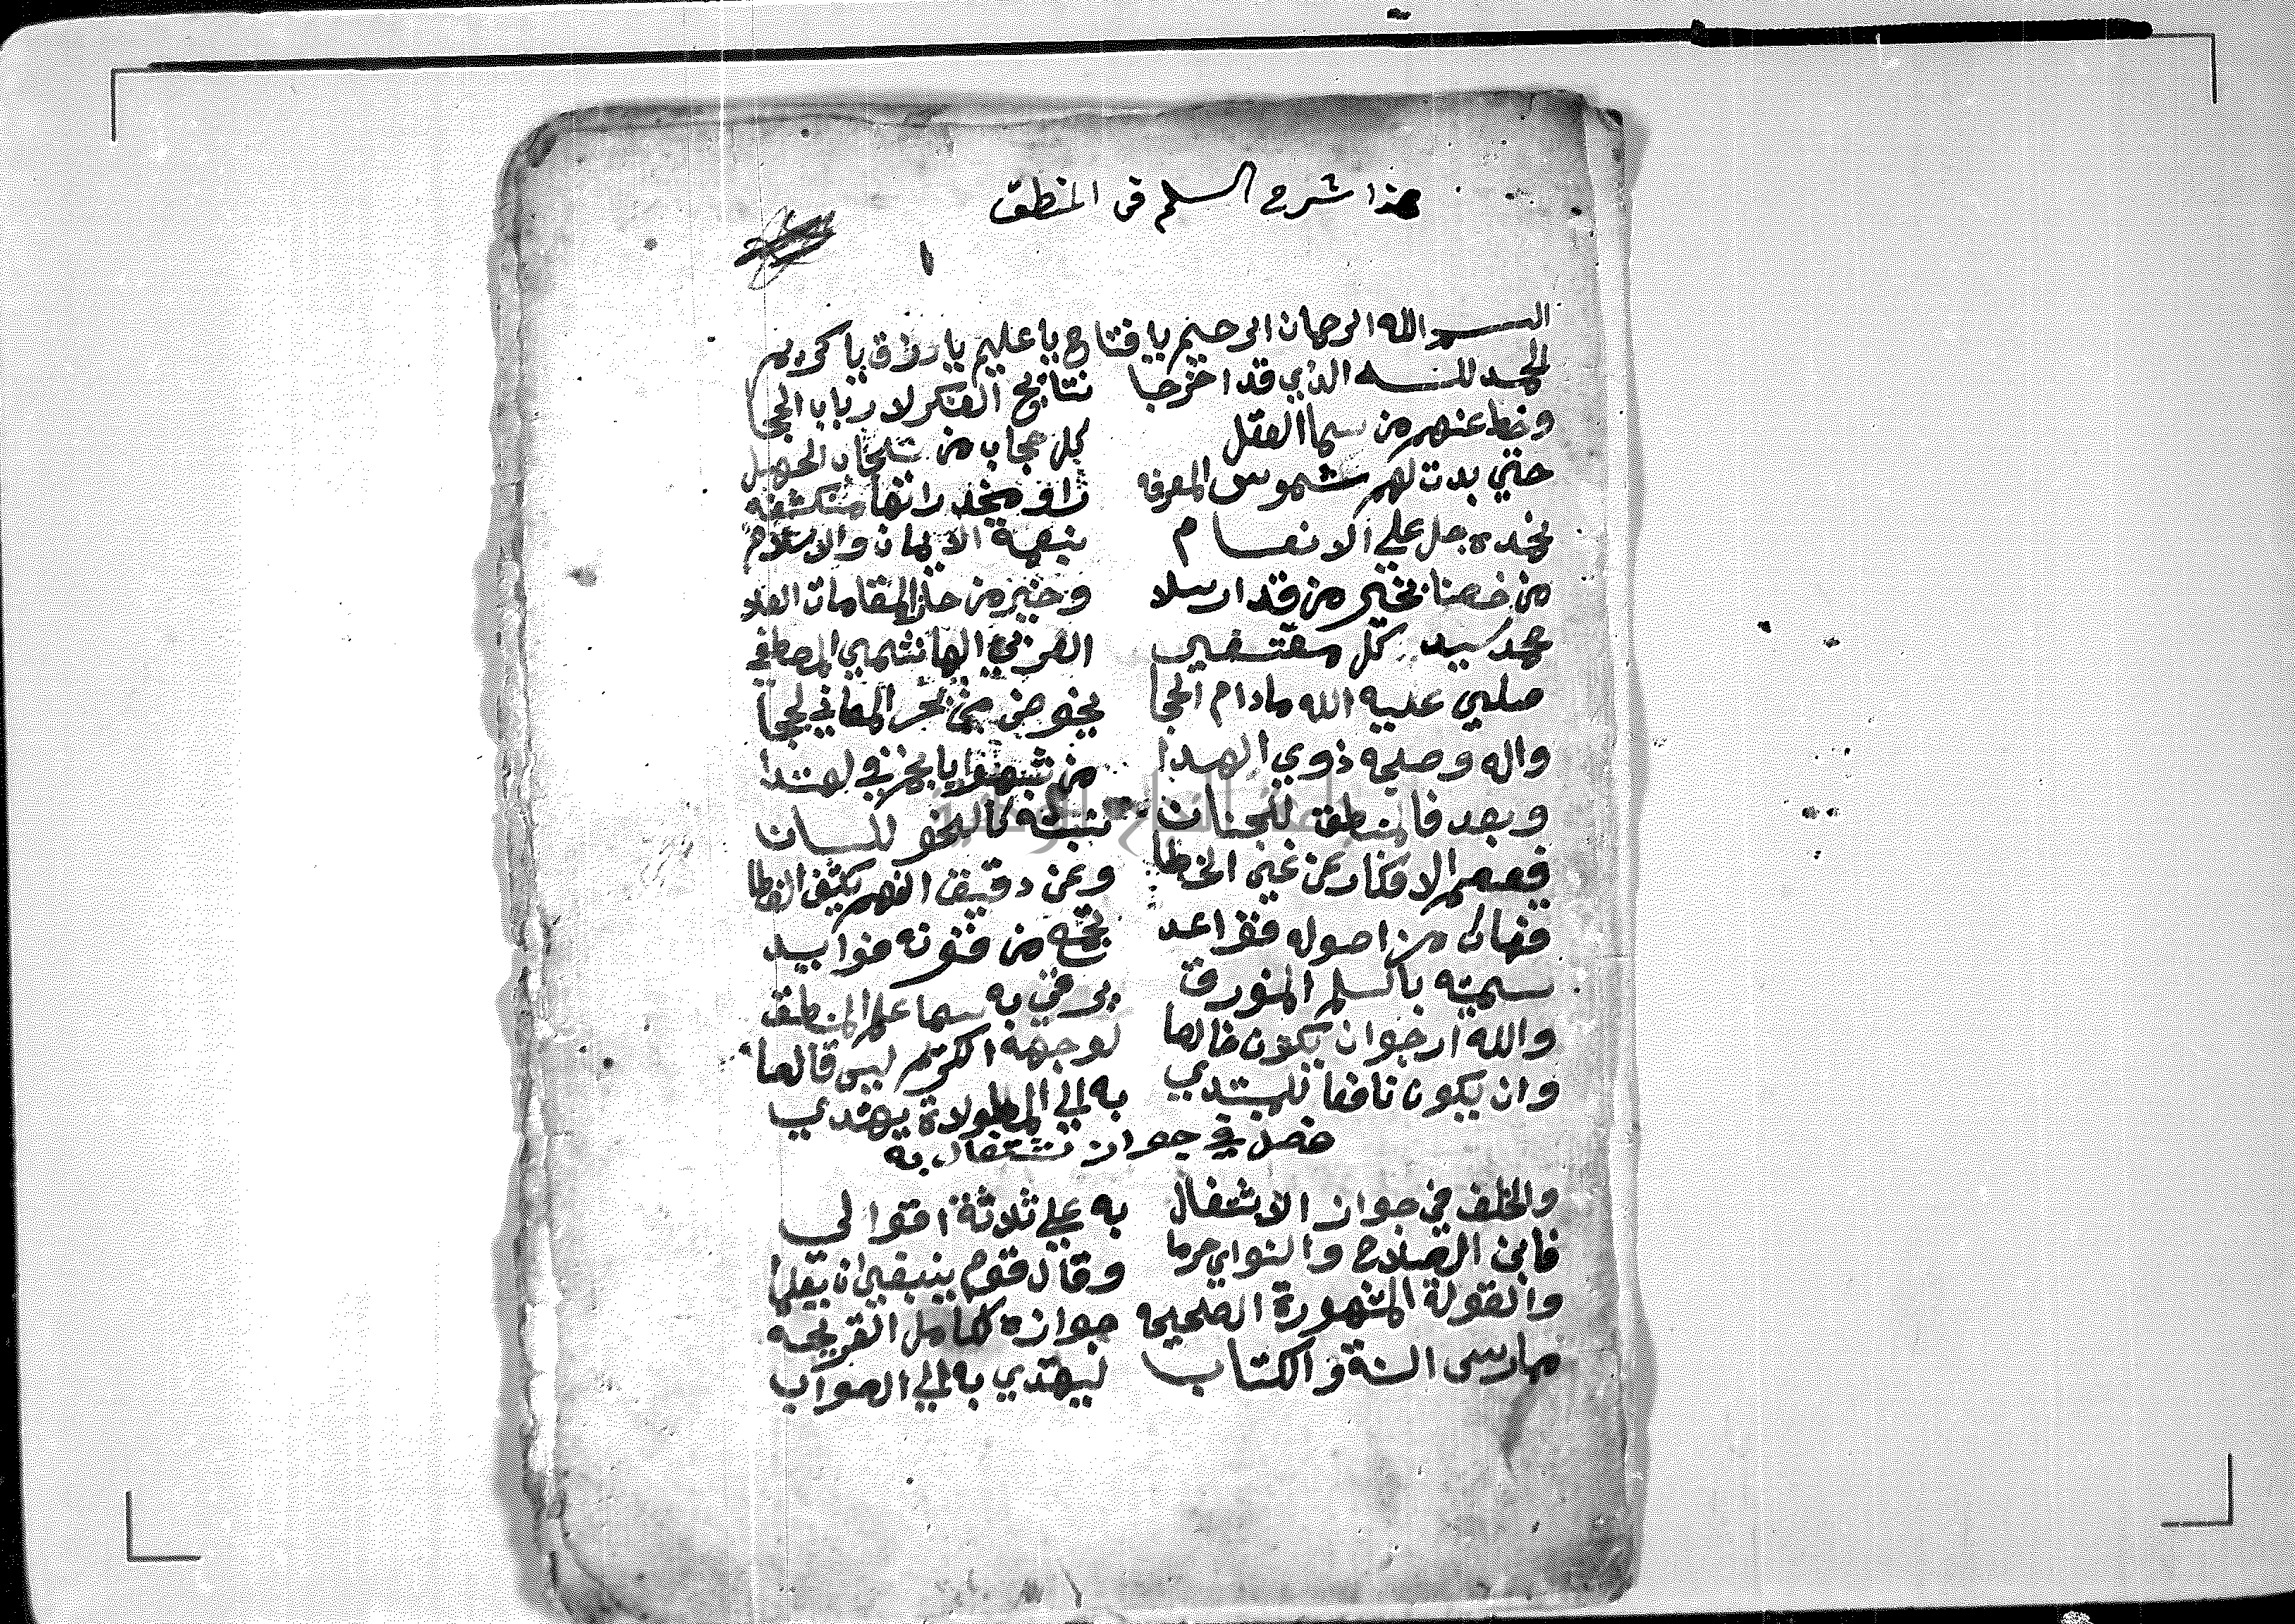 هذا شرح السلم في المنطق
١
بسم الله الرحمان الرحيم يا فتاح يا عليم يا رزاق يا كريم
الحمد لله الذي قد اخرجا نتايج الفكر لارباب الحجا
وحط عنهم من سما العقل كل حجاب من سحاب الجهل
حتي بدت لهم شموس المعرفه راو مخدراتها منكشفه
نحمده جل علي الانعام بنعمة الايمان والاسلام
من خصنا بخير من قد ارسلا وخير من حاز المقامات العلا
محمد سيد كل مقتفي العربي الهاشمي المصطفي
صلي عليه الله مادام الحجا يخوض من بحر المعاني لججا
واله وصحبه ذوي الهدا من شبهوا بانجم في اهتدا
وبعد فالمنطق للجنان نسبته كالنحو للسان
فيعصم الافكار عن غي الخطا وعن دقيق الفهم يكشف الغطا
فهاك من اصوله قواعد تجمع من فنونه فوايد
سميته بالسلم المنورق يرقي به سما علم المنطق
والله ارجوا ان يكون خالصا لوجهه الكريم ليس قالصا
وان يكون نافعا للمبتدي به الي المطولاة يهتدي
فصل في جواز شتغال به
والخلف في جواز الاشتغال به علي ثلاثة اقوالي
فابن الصلاح والنواوي حرما وقال قوم ينبغي ان يعلما
والقولة المشهورة الصحيحه جوازه لكامل القريحه
مارسى السنة والكتاب ليهتدي به الي الصواب
جامعة النجاح الوطنية